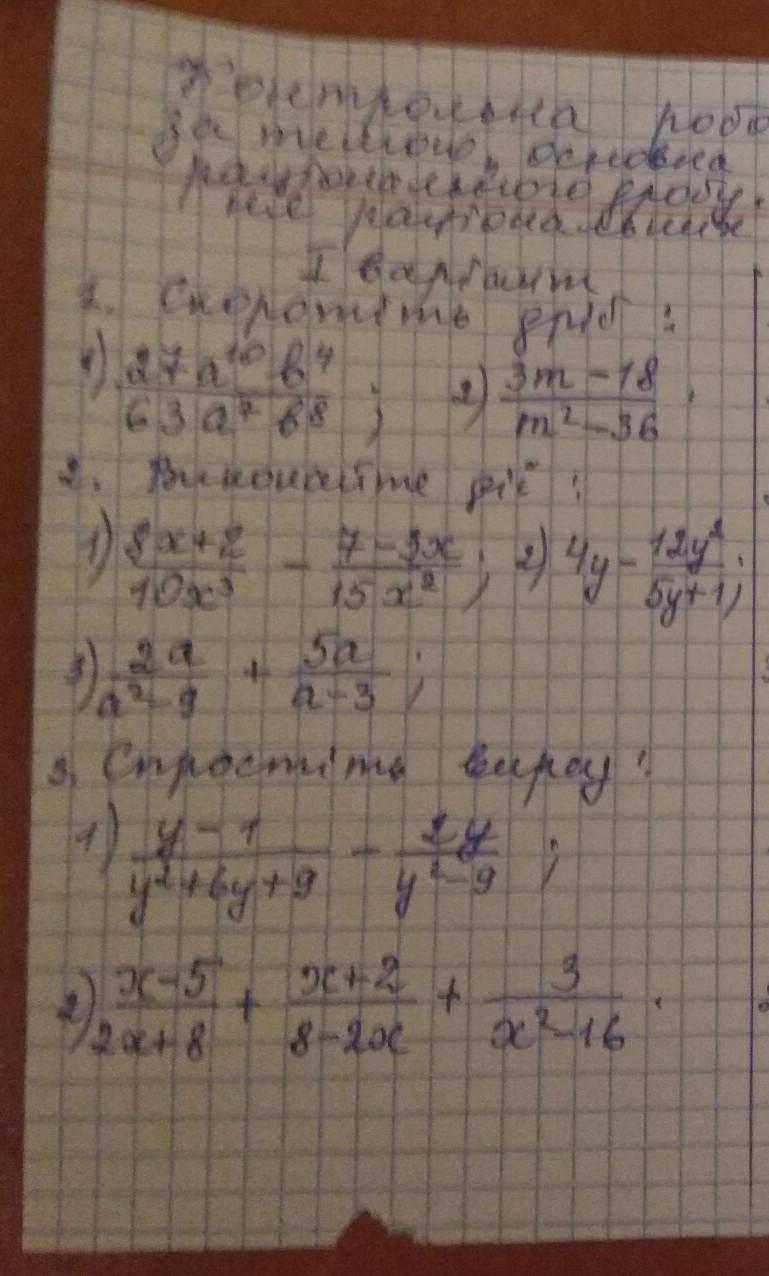 Контрольна робо
за темою „ основна
раціонального дробу.
ня раціональних
I варіант
1. Скоротіть дріб :
1) \frac{27a^{10} b^4}{63a^7 b^8} ; 2) \frac{3m-18}{m^2-36} .
2. Виконайте дії :
1) \frac{8x+2}{10x^3} - \frac{7-3x}{15x^2} ; 2) 4y - \frac{12y^2}{5y+1} ;
3) \frac{2a}{a^2-9} + \frac{5a}{a-3} ;
3. Спростіть вираз :
1) \frac{y-1}{y^2+6y+9} - \frac{2y}{y^2-9} ;
2) \frac{x-5}{2x+8} + \frac{x+2}{8-2x} + \frac{3}{x^2-16} .